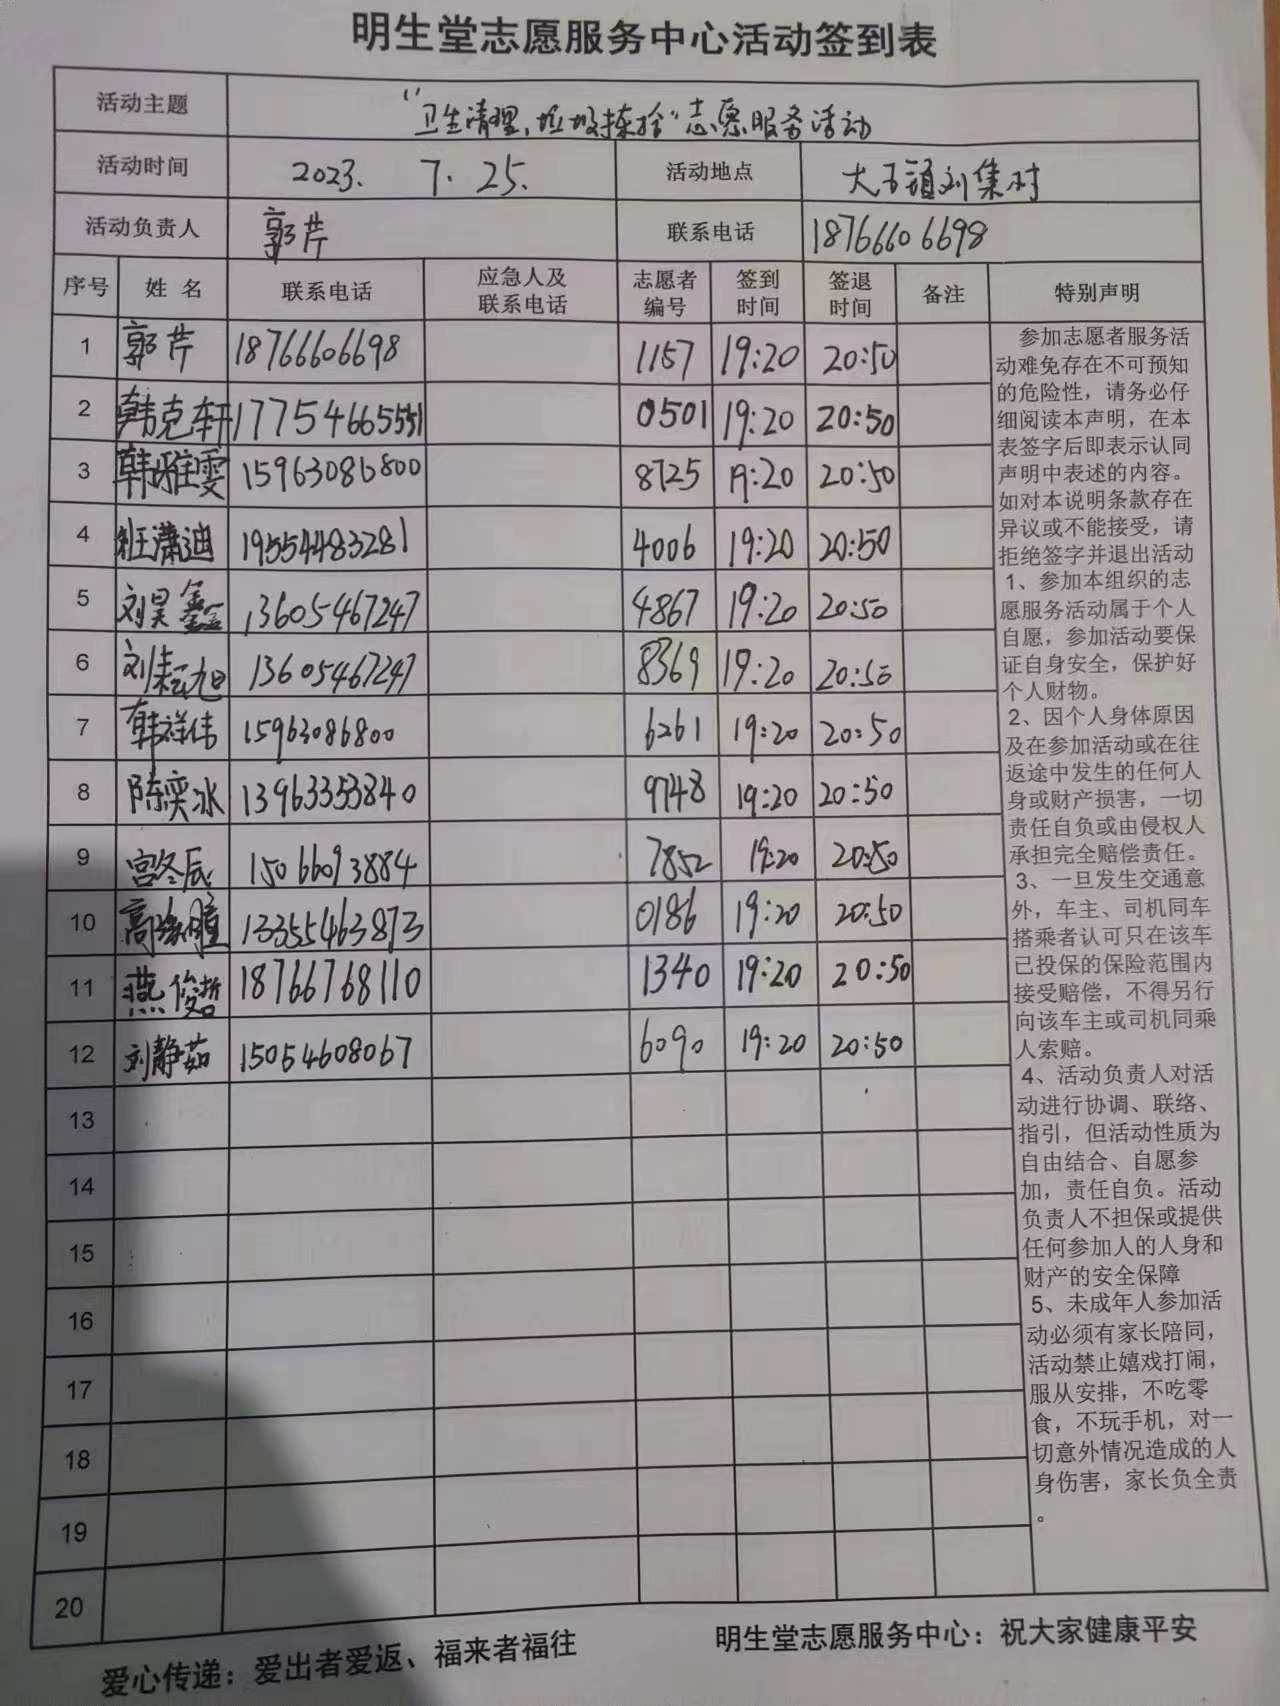 明生堂志愿服务中心活动签到表
活动主题 “卫生清理、垃圾捡拾”志愿服务活动
活动时间 2023. 7. 25. 活动地点 大王镇刘集村
活动负责人 郭芹 联系电话 18766606698
序号 姓名 联系电话 应急人及联系电话 志愿者编号 签到时间 签退时间 备注 特别声明
1 郭芹 18766606698 1157 19:20 20:50
2 韩克轩 17754665551 0501 19:20 20:50
3 韩雅雯 15963086800 8725 19:20 20:50
4 潇迪 19554483281 4006 19:20 20:50
5 刘昊鑫 13605467247 4867 19:20 20:50
6 刘耘旭 13605467247 8369 19:20 20:50
7 韩祥伟 15963086800 6261 19:20 20:50
8 陈奕冰 13963353840 9748 19:20 20:50
9 宫冬辰 15066093884 7852 19:20 20:50
10 高 13355463873 0186 19:20 20:50
11 燕俊哲 18766768110 1340 19:20 20:50
12 刘静茹 15054608067 6090 19:20 20:50
13
14
15
16
17
18
19
20
参加志愿者服务活
动难免存在不可预知
的危险性，请务必仔
细阅读本声明，在本
表签字后即表示认同
声明中表述的内容。
如对本说明条款存在
异议或不能接受，请
拒绝签字并退出活动
1、参加本组织的志
愿服务活动属于个人
自愿，参加活动要保
证自身安全，保护好
个人财物。
2、因个人身体原因
及在参加活动或在往
返途中发生的任何人
身或财产损害，一切
责任自负或由侵权人
承担完全赔偿责任。
3、一旦发生交通意
外，车主、司机同车
搭乘者认可只在该车
已投保的保险范围内
接受赔偿，不得另行
向该车主或司机同乘
人索赔。
4、活动负责人对活
动进行协调、联络、
指引，但活动性质为
自由结合、自愿参
加，责任自负。活动
负责人不担保或提供
任何参加人的人身和
财产的安全保障
5、未成年人参加活
动必须有家长陪同，
活动禁止嬉戏打闹，
服从安排，不吃零
食，不玩手机，对一
切意外情况造成的人
身伤害，家长负全责
。
爱心传递：爱出者爱返、福来者福往 明生堂志愿服务中心：祝大家健康平安